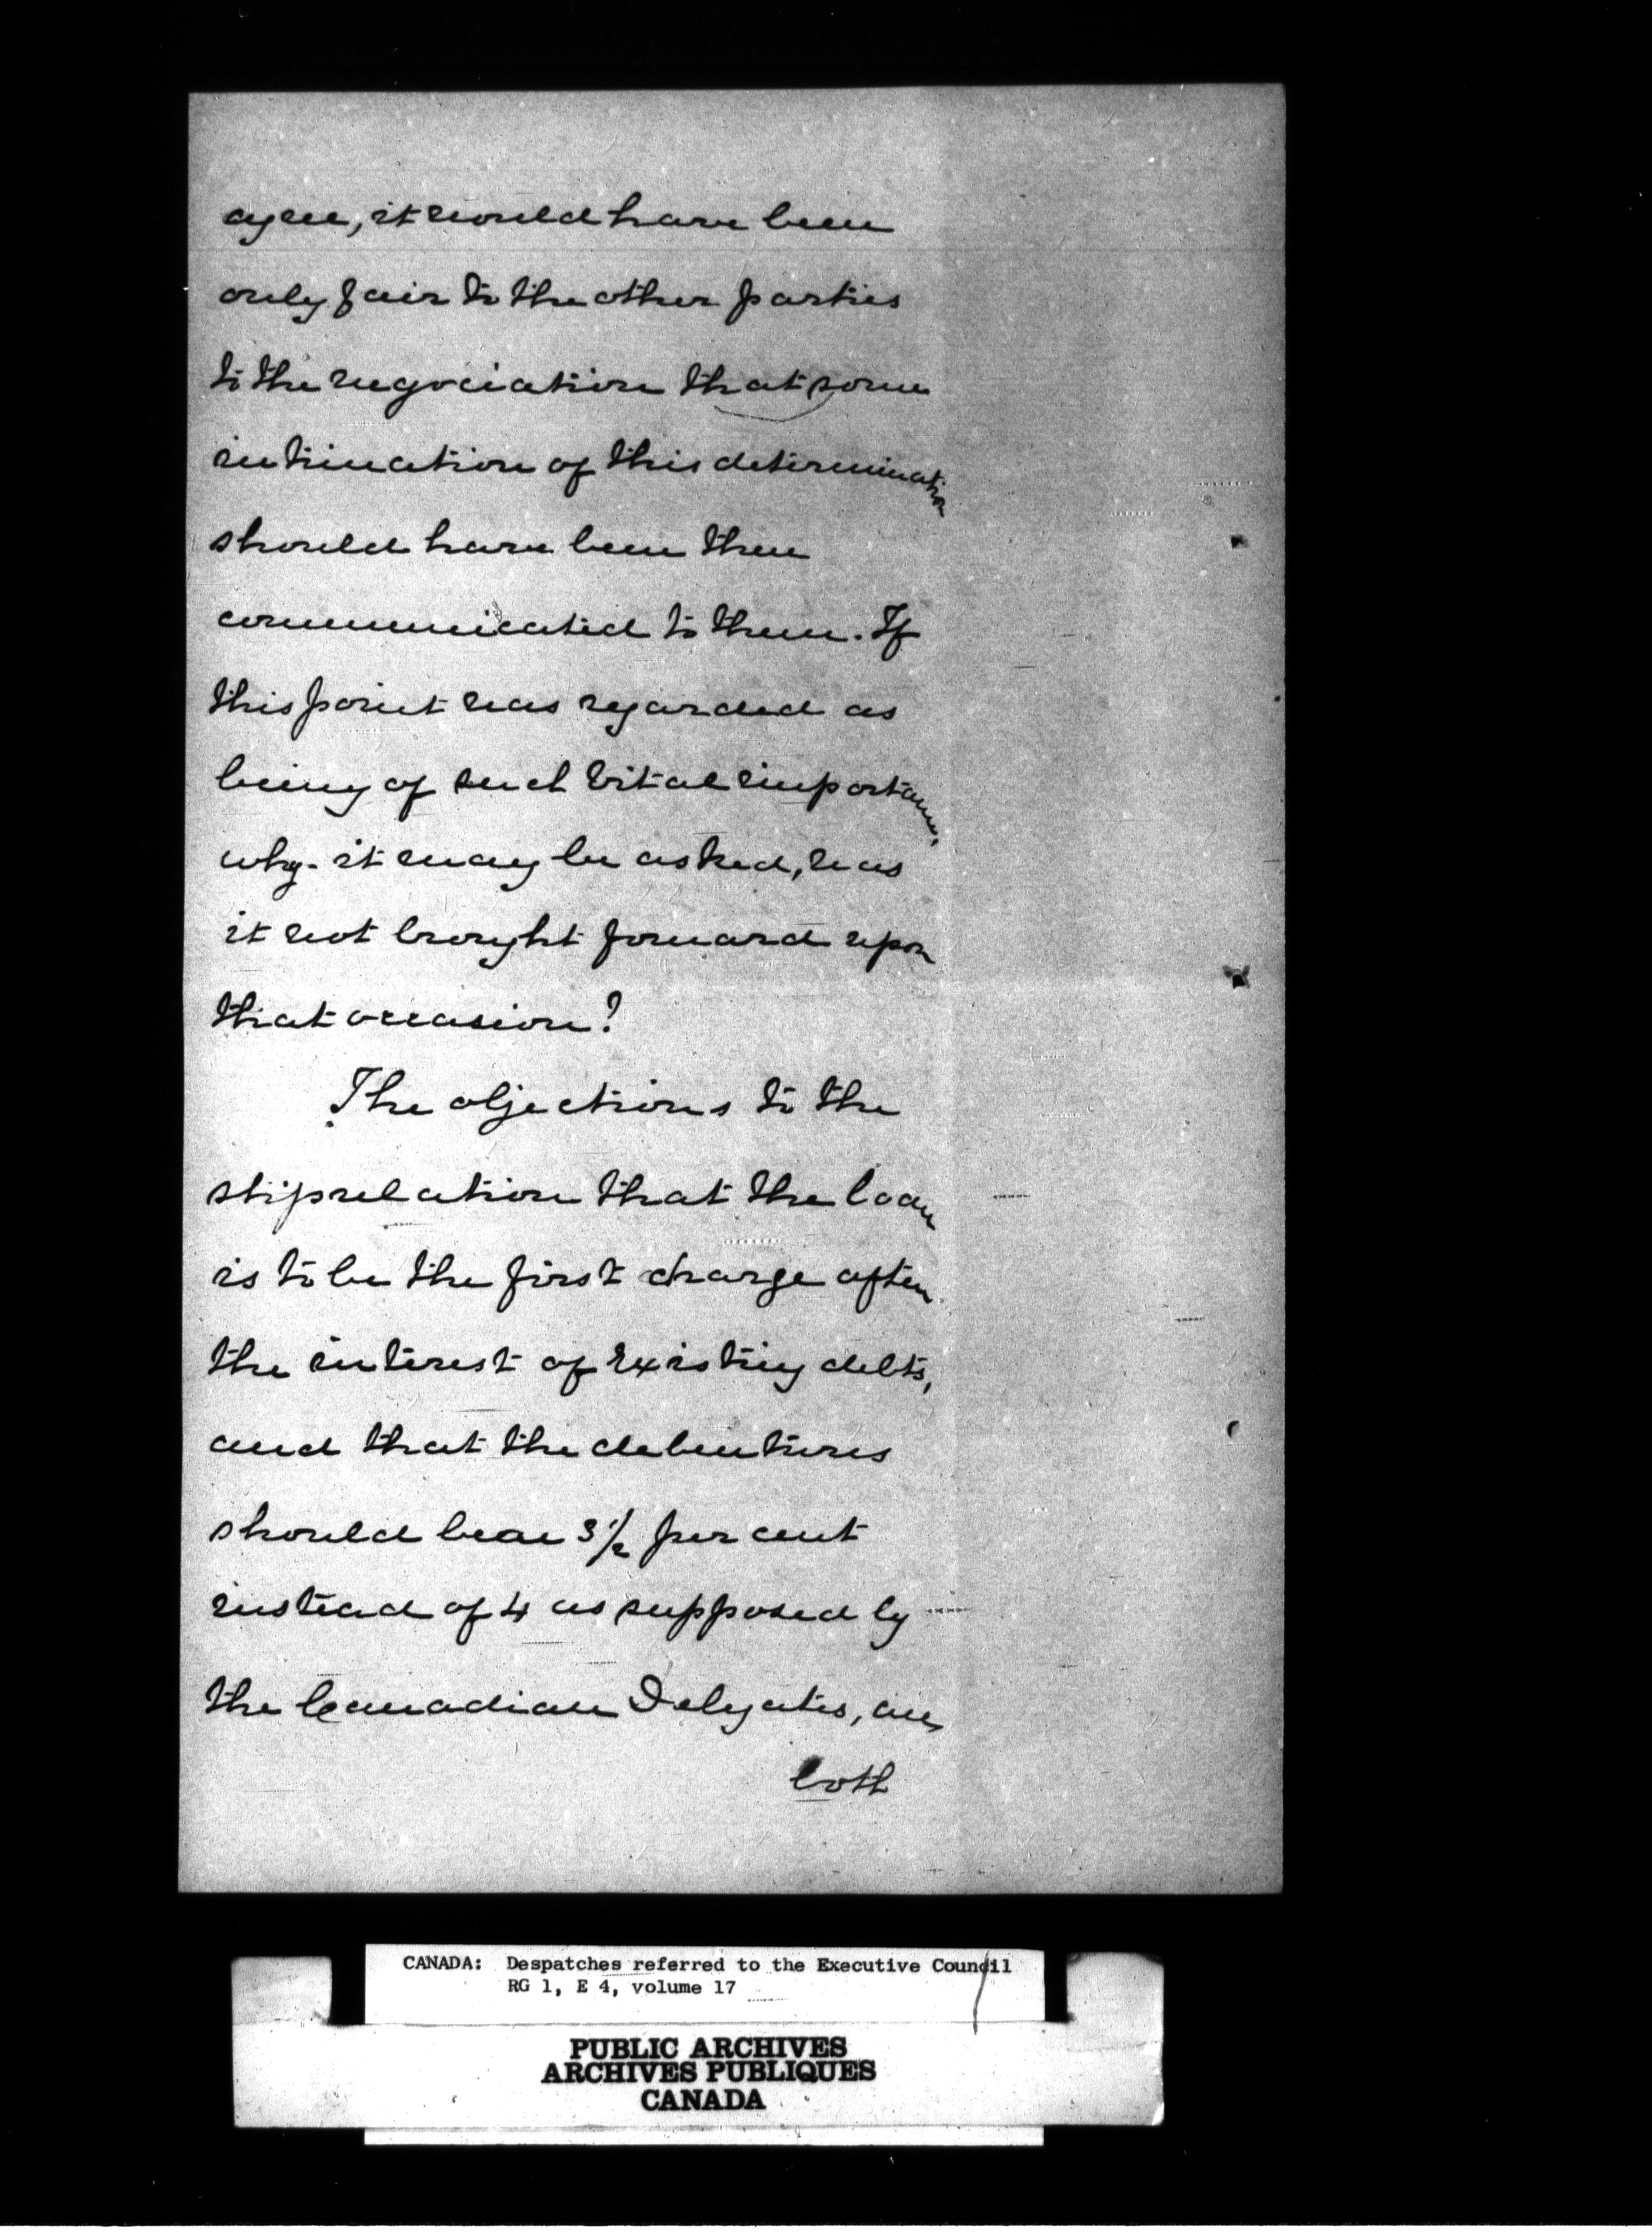 agree, it would have been
only fair to the other parties
to the negociation that some
intimation of this determination
should have been then
communicated to them. If
this point was regarded as
being of such vital importance,
why. it may be asked, was
it not brought forward upon
that occasion?
The objections to the
stipulation that the loan
is to be the first charge after
the interest of existing debts,
and that the debentures
should bear 3 1/2 per cent
instead of 4 as supposed by
the Canadian Delegates, are
both
CANADA: Despatches referred to the Executive Council
RG 1, E 4, volume 17
PUBLIC ARCHIVES
ARCHIVES PUBLIQUES
CANADA